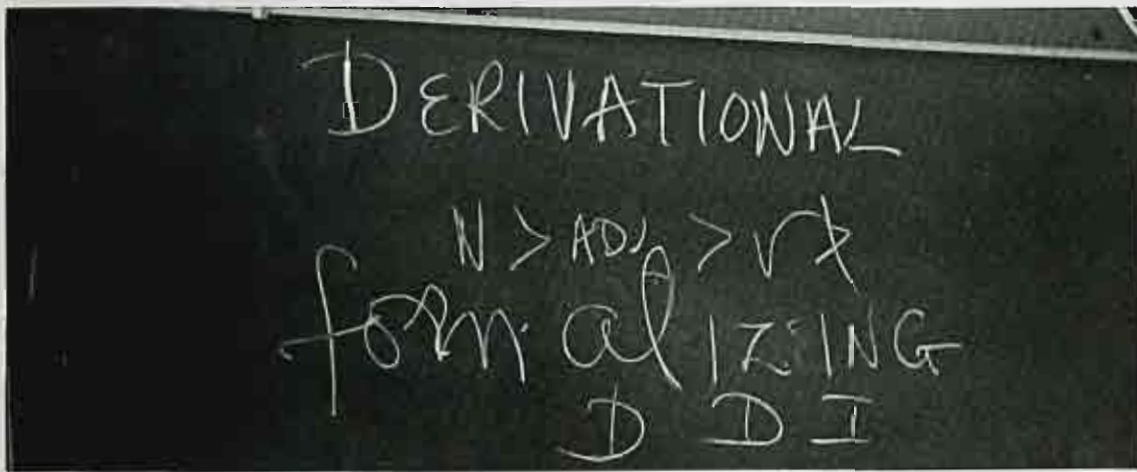 DERIVATIONAL
N > ADJ > V
form·al IZ·ING
D D I